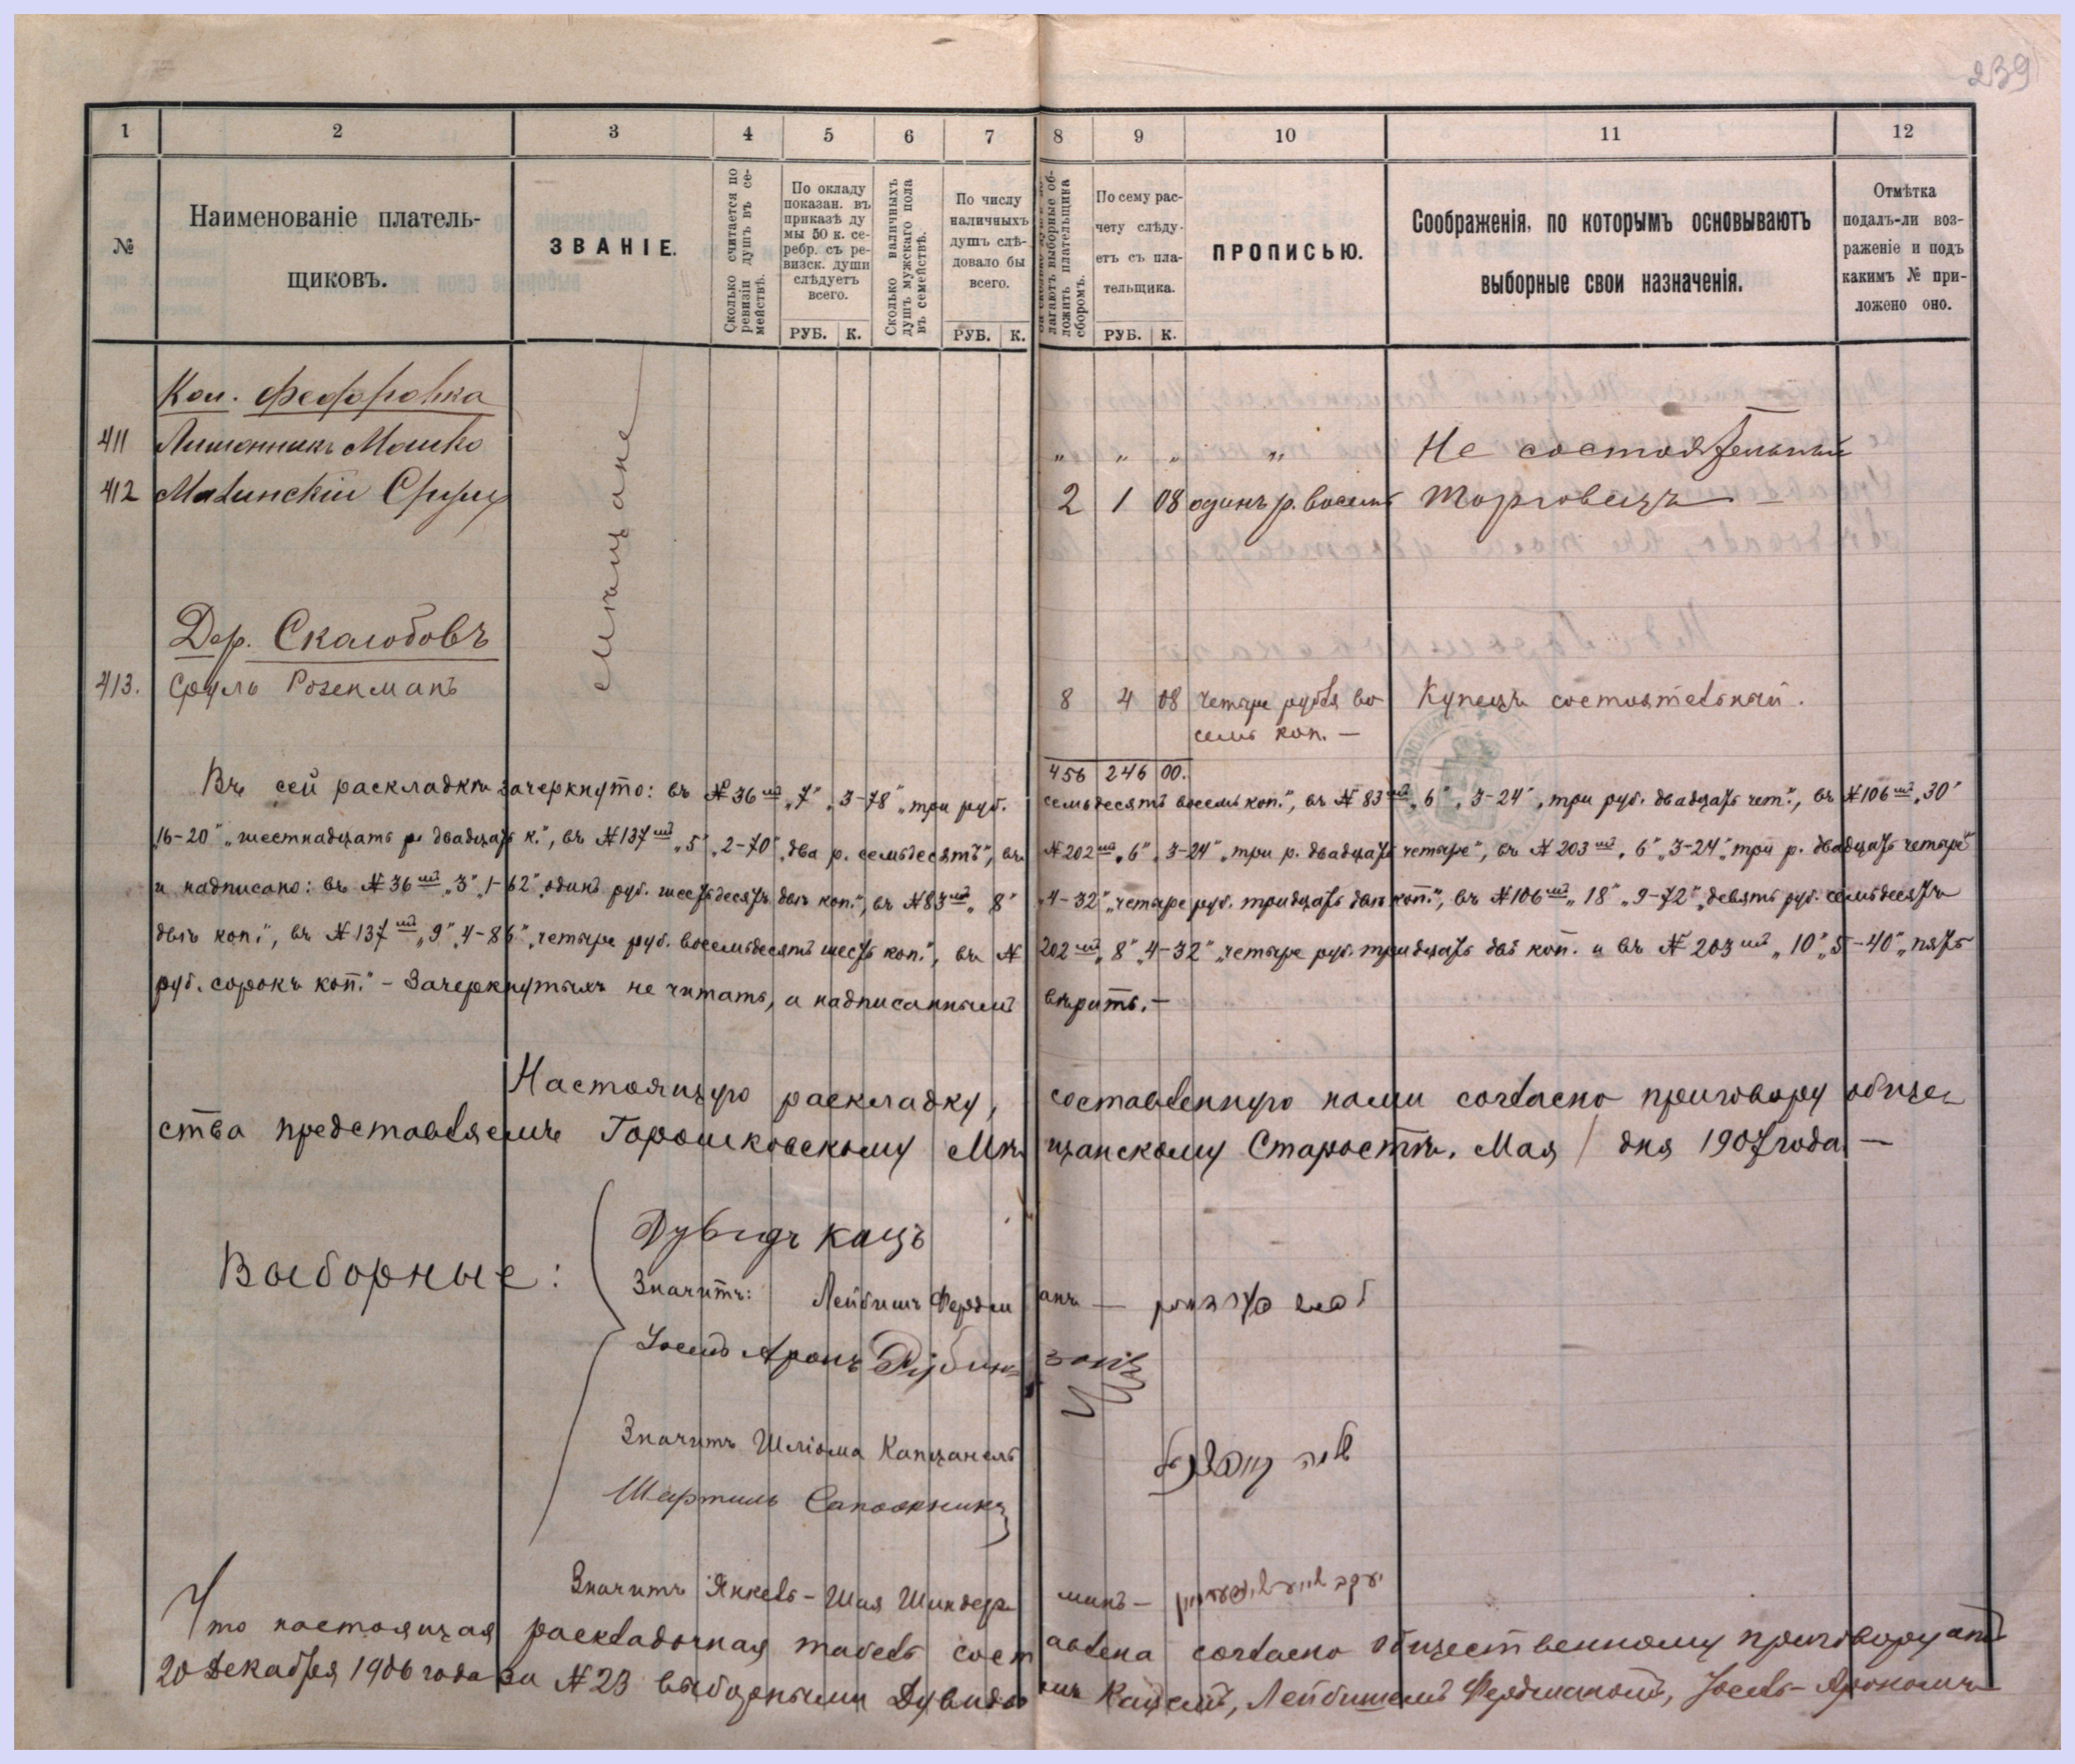 239
1 2 3 4 5 6 7 8 9 10 11 12
№
Наименованіе платель-
щиковъ.
ЗВАНІЕ.
Сколько считается по
ревизіи душъ въ се-
мействѣ.
По окладу
показан. въ
приказѣ ду
мы 50 к. се-
ребр. съ ре-
визск. души
слѣдуетъ
всего.
РУБ. К.
Сколько наличныхъ
душъ мужскаго пола
въ семействѣ.
По числу
наличныхъ
душъ слѣ-
довало бы
всего.
РУБ. К.
лагаютъ выборные об-
ложить плательщика
сборомъ.
По сему рас-
чету слѣду-
етъ съ пла-
тельщика.
РУБ. К.
ПРОПИСЬЮ.
Соображенія, по которымъ основываютъ
выборные свои назначенія.
Отмѣтка
подалъ-ли воз-
раженіе и подъ
какимъ № при-
ложено оно.
Кол. Федоровка
мѣщане
411 Лимонникъ Мошко „ „ „ „ Не состоятельный
412 Малинскій Сруль 2 1 08 одинъ р. восемь Торговецъ
Дер. Скалобовъ
413. Сруль Розенманъ 8 4 08 четыре рубля во Купецъ состоятельный.
семь коп. —
456 246 00.
Въ сей раскладкѣ зачеркнуто: въ № 36мъ „7“ „3-78“ „три руб. семьдесятъ восемь коп.“, въ № 83мъ „6“, 3-24“, три руб. двадцать чет.“, въ № 106мъ „30“
16-20“ „шестнадцать р. двадцать к.“, въ № 137мъ „5“ „2-70“ „два р. семьдесятъ“, въ № 202мъ „6“ „3-24“ „три р. двадцать четыре“, въ № 203мъ „6“ „3-24“ „три р. двадцать четыре“
и надписано: въ № 36мъ „3“ „1-62“ „одинъ руб. шестьдесятъ двѣ коп.“, въ № 83мъ „8“ „4-32“ „четыре руб. тридцать двѣ коп.“, въ № 106мъ „18“ „9-72“ „девять руб. семьдесятъ
двѣ коп.“, въ № 137мъ „9“ „4-86“ „четыре руб. восемьдесятъ шесть коп.“, въ № 202мъ „8“ „4-32“ „четыре руб. тридцать двѣ коп. и въ № 203мъ „10“ „5-40“ „пять
руб. сорокъ коп.“ – Зачеркнутыхъ не читать, а надписаннымъ вѣрить. —
Настоящую раскладку, составленную нами согласно приговору обще-
ства представляемъ Горошковскому Мѣщанскому Старостѣ. Мая / дня 1907 года —
Выборные:
Дувидъ Кацъ
Значитъ: Лейбишъ Фердманъ —
Іосивъ Аронъ Рубинзонъ
Значитъ Шліома Капцанель
Сапожникъ
Значитъ Янкель-Шая — יעקב
Что настоящая раскладочная табель составлена согласно общественному приговору отъ
20 Декабря 1906 года за № 23 выборными Дувидомъ Кацемъ, Лейбишемъ Фердманомъ, Іосель-Арономъ